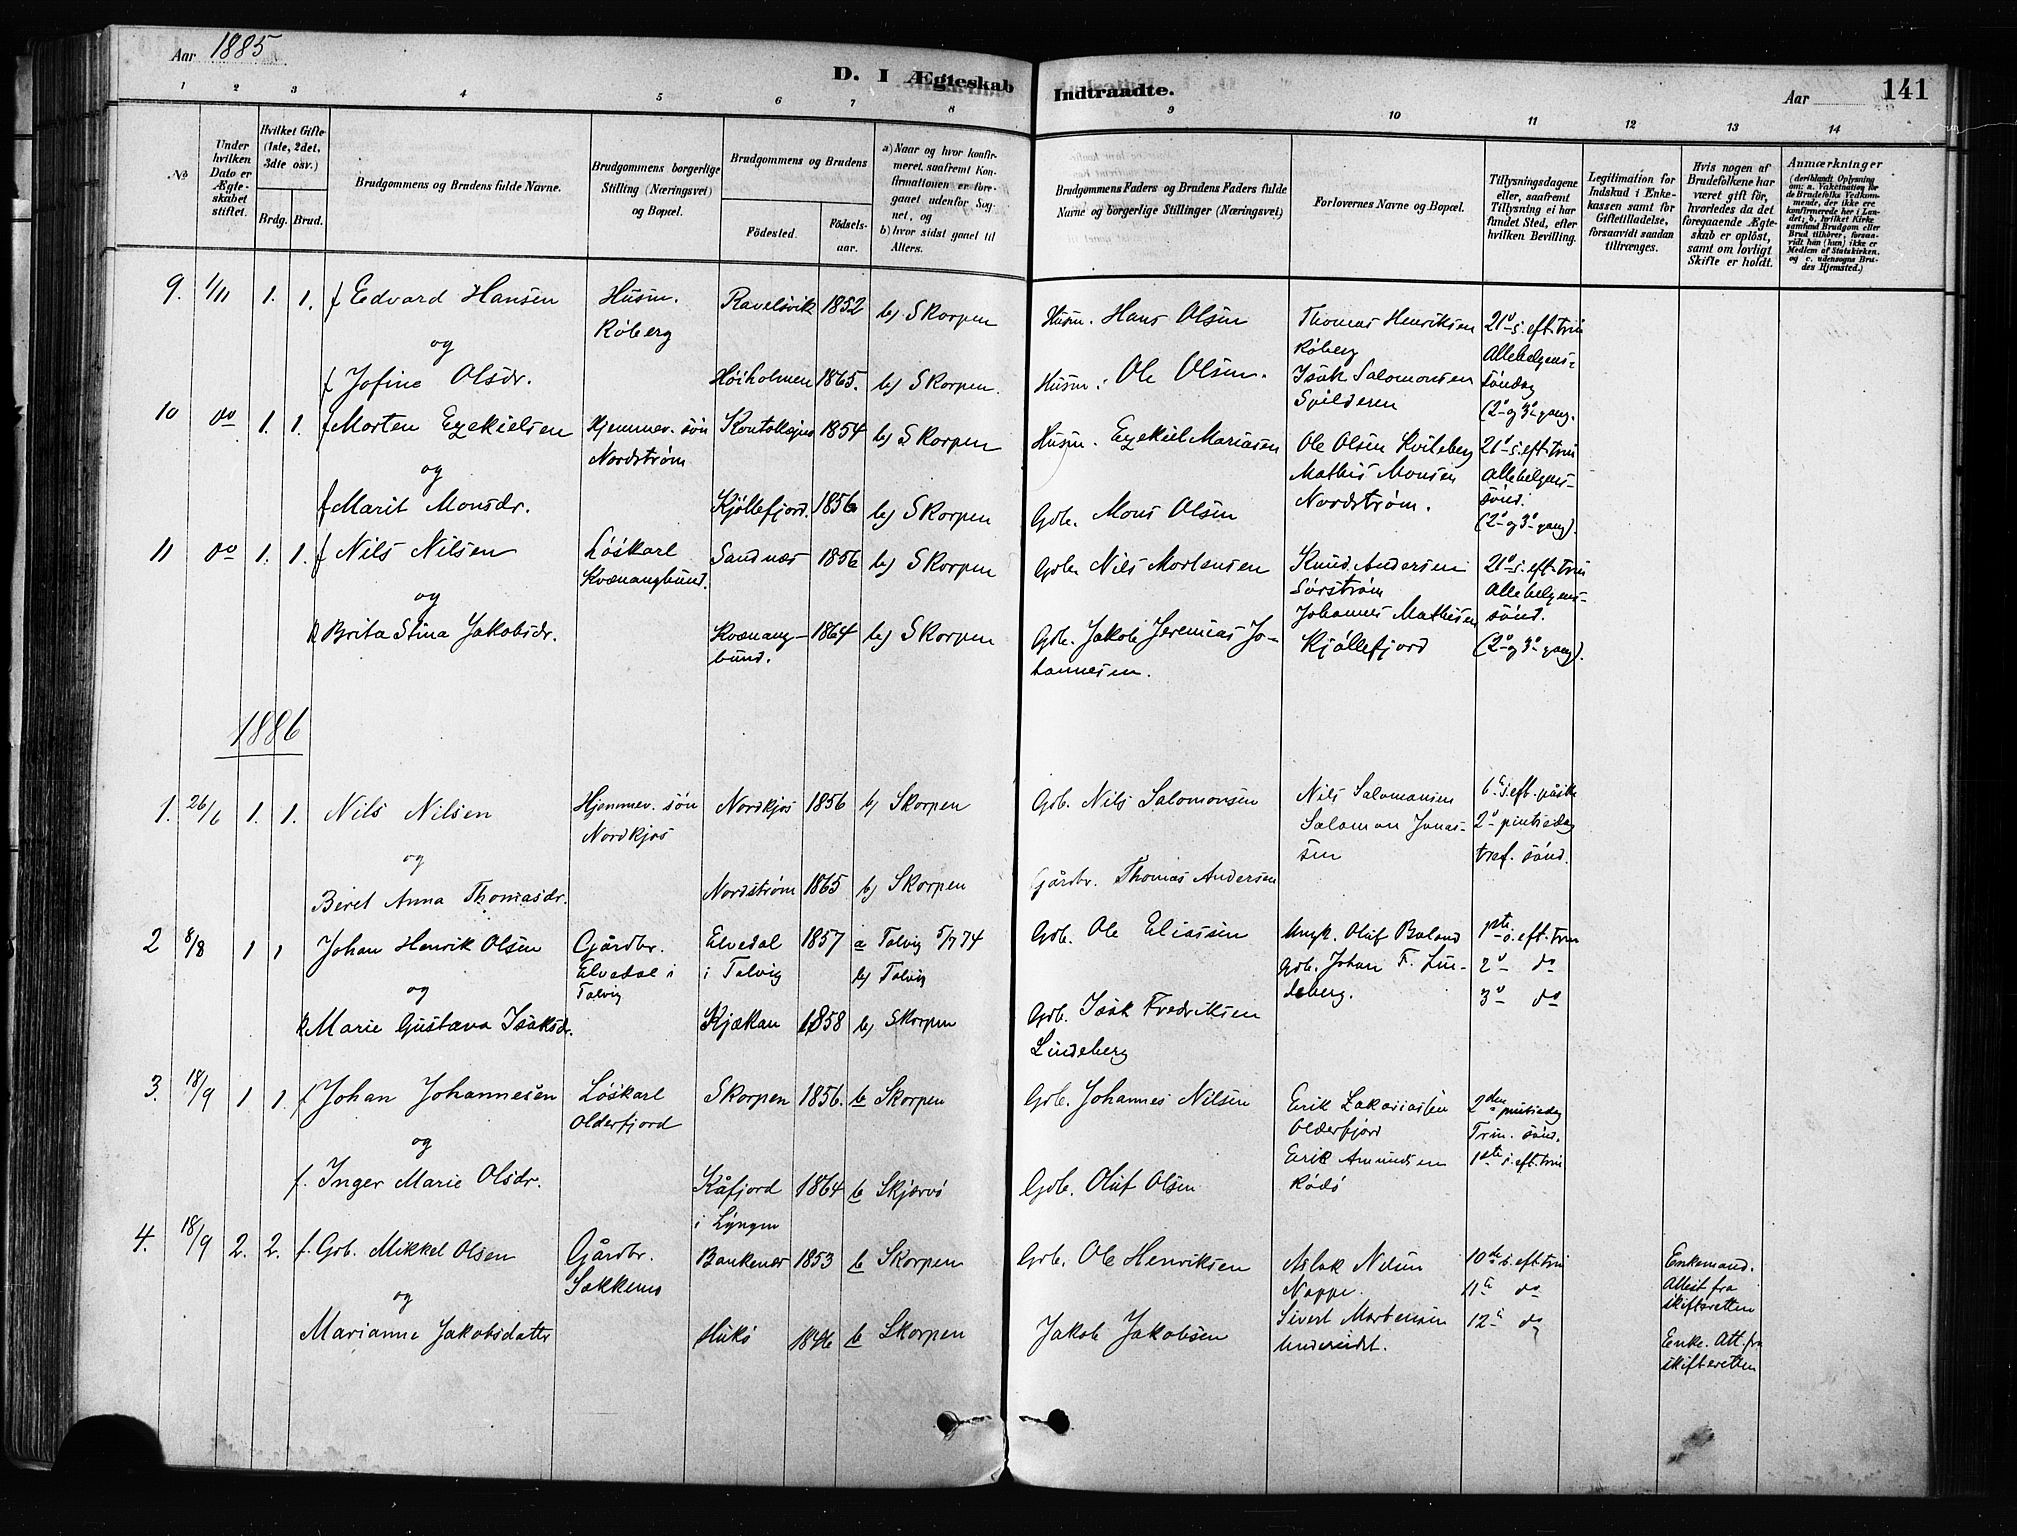 Aar 1885
D. I Ægteskab Indtraadte.
Aar 141
1 2 3 4 5 6 7 8 9 10 11 12 13 14
No
Under hvilken Dato er Ægteskabet stiftet.
Hvilket Gifte (1ste, 2det, 3die osv.)
Brdg. Brud.
Brudgommens og Brudens fulde Navne.
Brudgommens borgerlige Stilling (Næringsvei) og Bopæl.
Brudgommens og Brudens
Födested. Födselsaar.
a) Naar og hvor konfirmeret, saafremt Konfirmationen er foregaaet udenfor Sognet, og
b) hvor sidst gaaet til Alters.
Brudgommens Faders og Brudens Faders fulde Navne og borgerlige Stillinger (Næringsvei)
Forlovernes Navne og Bopæl.
Tillysningsdagene eller, saafremt Tillysning ei har fundet Sted, efter hvilken Bevilling.
Legitimation for Indskud i Enkekassen samt for Giftetilladelse, forsaavidt saadan tiltrænges.
Hvis nogen af Brudefolkene har været gift för, hvorledes da det foregaaende Ægteskab er oplöst, samt om lovligt Skifte er holdt.
Anmærkninger (deriblandt Oplysning om: a. Vakcination for de Brudefolks Vedkommende, der ikke ere konfirmerede her i Landet; b. hvilket Kirkesamfund Brudgom eller Brud tilhörer, forsaavidt han (hun) ikke er Medlem af Statskirken, og c. udensogns Brudes Hjemsted.)
9. 1/11 1. 1. f Edvard Hansen Husm. Røberg Ravelsvik 1852 b) Skorpen Husm. Hans Olsen Thomas Henriksen Røberg 21de s. eft. trin
og Allehelgens-
f Jofine Olsdr. Høiholmen 1865. b) Skorpen. Husm. Ole Olsen. Isak Salomonsen Spilderen søndag (2o og 3o gang.
10 do 1. 1. f Morten Ezekielsen Hjemmev. søn Nordstrøm 1854 b) Skorpen Husm. Ezekiel Mariasen Ole Olsen Kvileberg 21de s. eft. trin
og Mathis Monsen Allehelgens-
f Marit Monsdr. Kjøllefjord. 1856 b) Skorpen Gdb. Mons Olsen Nordstrøm. sønd. (2o og 3o gang).
11 do 1. 1. f Nils Nilsen Løskarl Kvænangbund. Sandnæs 1856 b) Skorpen Gdbr. Nils Mortensen Knud Andersen Sørstrøm 21de s. eft. trin
og Allehelgens-
k Brita Stina Jakobsdr. Kvænangbund. 1864 b) Skorpen Gdb. Jakob Jeremias Johannesen. Johannes Mathisen Kjøllefjord sønd. (2o og 3o gang).
1886
1. 26/6 1. 1. Nils Nilsen Hjemmev. søn Nordkjos Nordkjos 1856 b) Skorpen Gdb. Nils Salomonsen Nils Salomonsen 6te s. eft. påske
og Salomon Jonassen 2den pintsedag
Beret Anna Thomasdr. Nordstrøm 1865 b) Skorpen Gårdbr. Thomas Andersen tref. sønd.
2 8/8 1 1 Johan Henrik Olsen Gårdbr. Elvedal i Talvig Elvedal i Talvig 1857 a Talvig 5/7 74 b) Talvig Gdb. Ole Eliassen Ungk. Oluf Boland 1ste s. eft. trin
og Gdb. Johan F. Lindeberg. 2o do
k Marie Gustava Isaksdr. Kjækan 1858 b) Skorpen Gdb. Isak Fredriksen Lindeberg 3o do
3. 18/9 1 1. f Johan Johannesen Løskarl Olderfjord Skorpen 1856. b Skorpen Gdb. Johannes Nilsen Erik Zakariasen Olderfjord 2den pintsedag
og Trin. sønd.
f. Inger Marie Olsdr. Kåfjord i Lyngen 1864 b Skjærvø Gdb. Oluf Olsen Erik Amundsen Rødø 1ste s. eft. trin
4. 18/9 2. 2. f. Gdb. Mikkel Olsen Gårdbr. Bankenes 1853 b Skorpen Gdb. Ole Henriksen Aslak Nilsen Noppe. 10de s. eft. trin Enkemand. Attest fra skifteretten
og 11te do
Marianne Jakobsdatter Hukø b Skorpen Jakob Jakobsen Sivert Mortensen 12te do Enke. Att. fra skifteretten